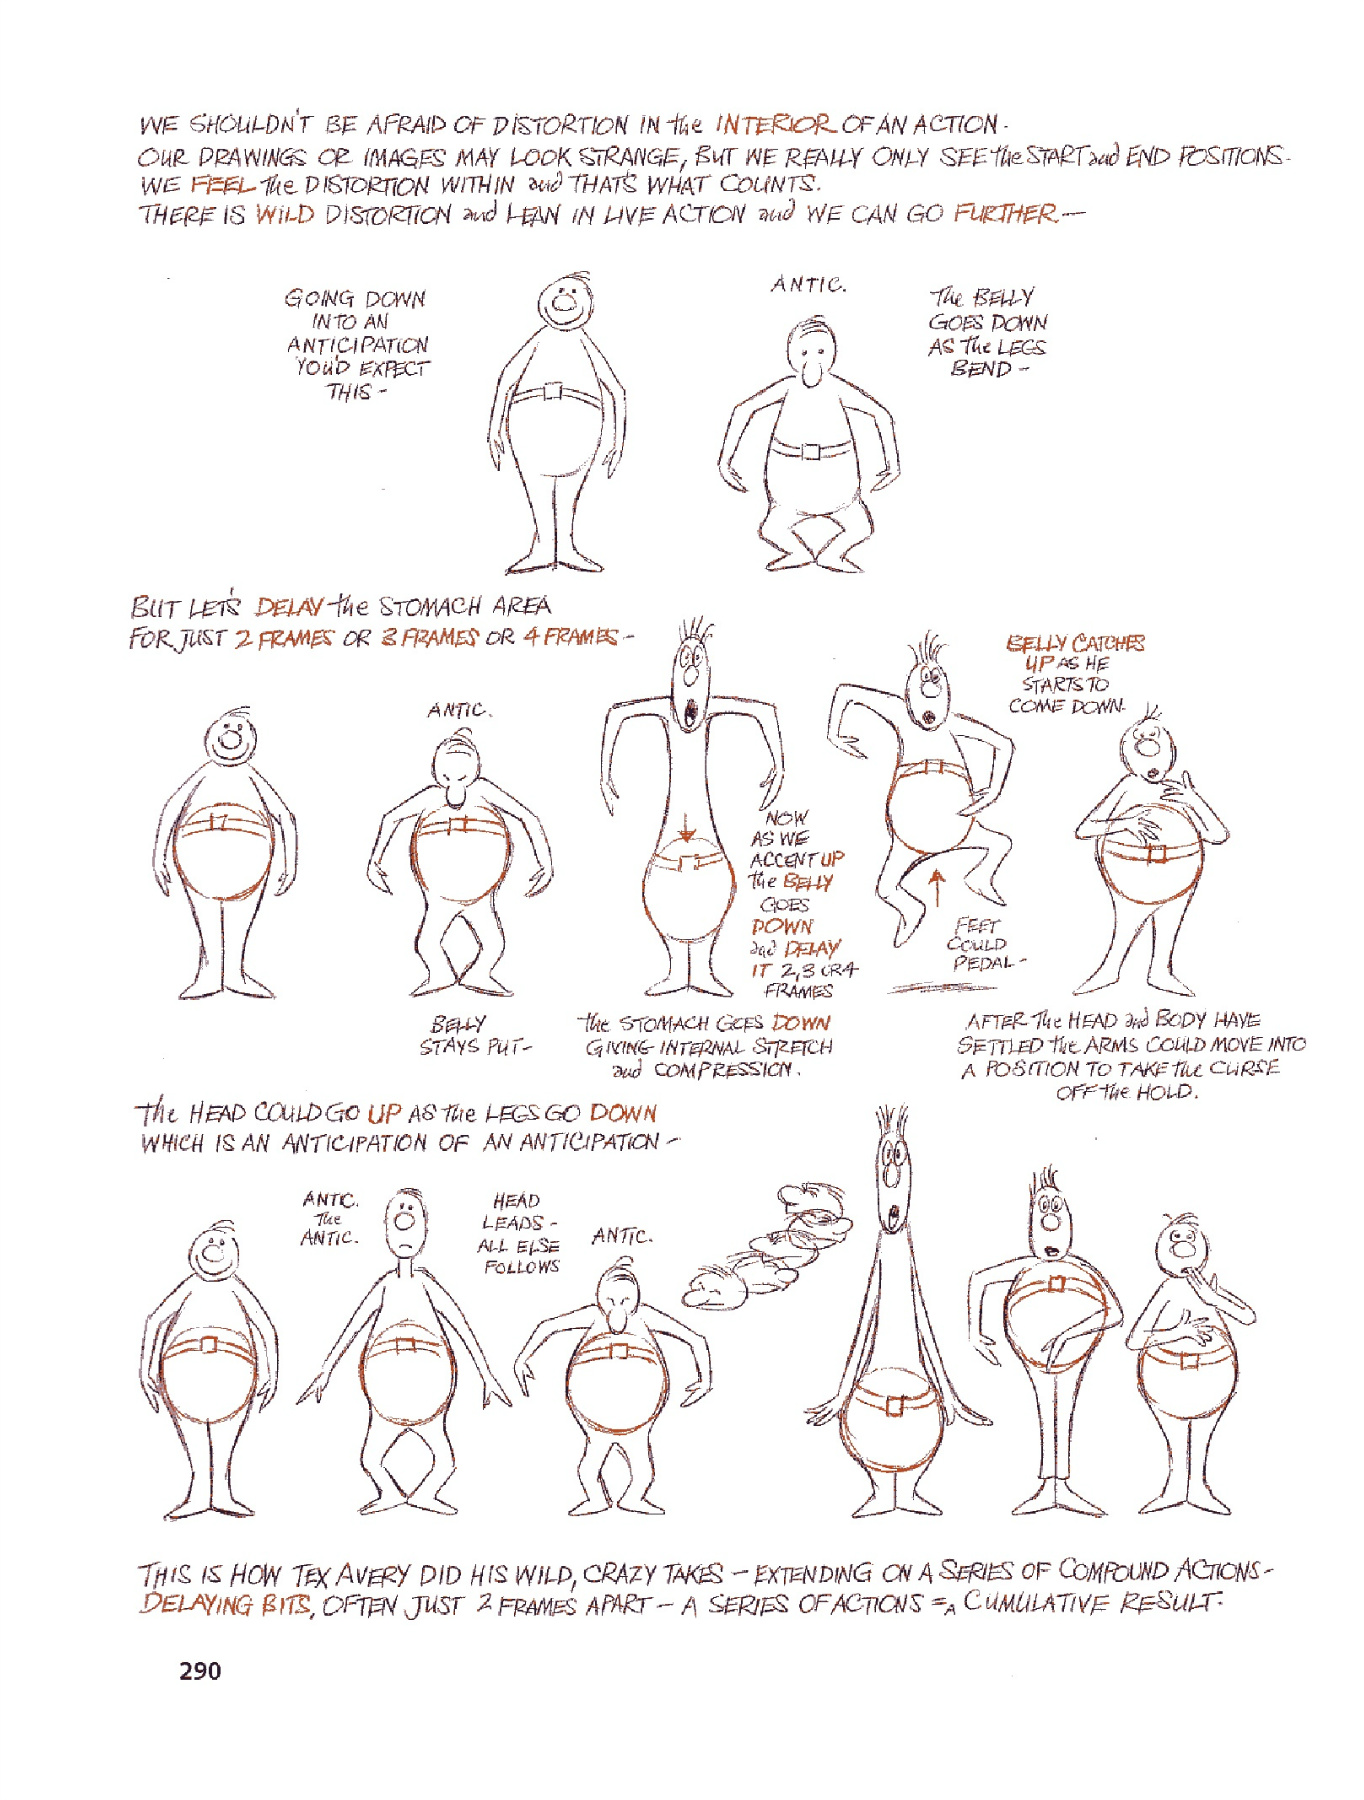 WE SHOULDN'T BE AFRAID OF DISTORTION IN the INTERIOR OF AN ACTION.
OUR DRAWINGS OR IMAGES MAY LOOK STRANGE, BUT WE REALLY ONLY SEE the START and END POSITIONS.
WE FEEL the DISTORTION WITHIN and THAT'S WHAT COUNTS.
THERE IS WILD DISTORTION and LEAN IN LIVE ACTION and WE CAN GO FURTHER —
GOING DOWN
INTO AN
ANTICIPATION
YOU'D EXPECT
THIS -
ANTIC.
The BELLY
GOES DOWN
AS The LEGS
BEND -
BUT LET'S DELAY the STOMACH AREA
FOR JUST 2 FRAMES OR 3 FRAMES OR 4 FRAMES -
ANTIC.
BELLY
STAYS PUT -
NOW
AS WE
ACCENT UP
The BELLY
GOES
DOWN
and DELAY
IT 2,3 OR 4
FRAMES
the STOMACH GOES DOWN
GIVING INTERNAL STRETCH
and COMPRESSION.
FEET
COULD
PEDAL -
BELLY CATCHES
UP AS HE
STARTS TO
COME DOWN.
AFTER The HEAD and BODY HAVE
SETTLED the ARMS COULD MOVE INTO
A POSITION TO TAKE the CURSE
OFF the HOLD.
The HEAD COULD GO UP AS The LEGS GO DOWN
WHICH IS AN ANTICIPATION OF AN ANTICIPATION -
ANTIC.
The
ANTIC.
HEAD
LEADS -
ALL ELSE
FOLLOWS
ANTIC.
THIS IS HOW TEX AVERY DID HIS WILD, CRAZY TAKES — EXTENDING ON A SERIES OF COMPOUND ACTIONS -
DELAYING BITS, OFTEN JUST 2 FRAMES APART — A SERIES OF ACTIONS = A CUMULATIVE RESULT.
290